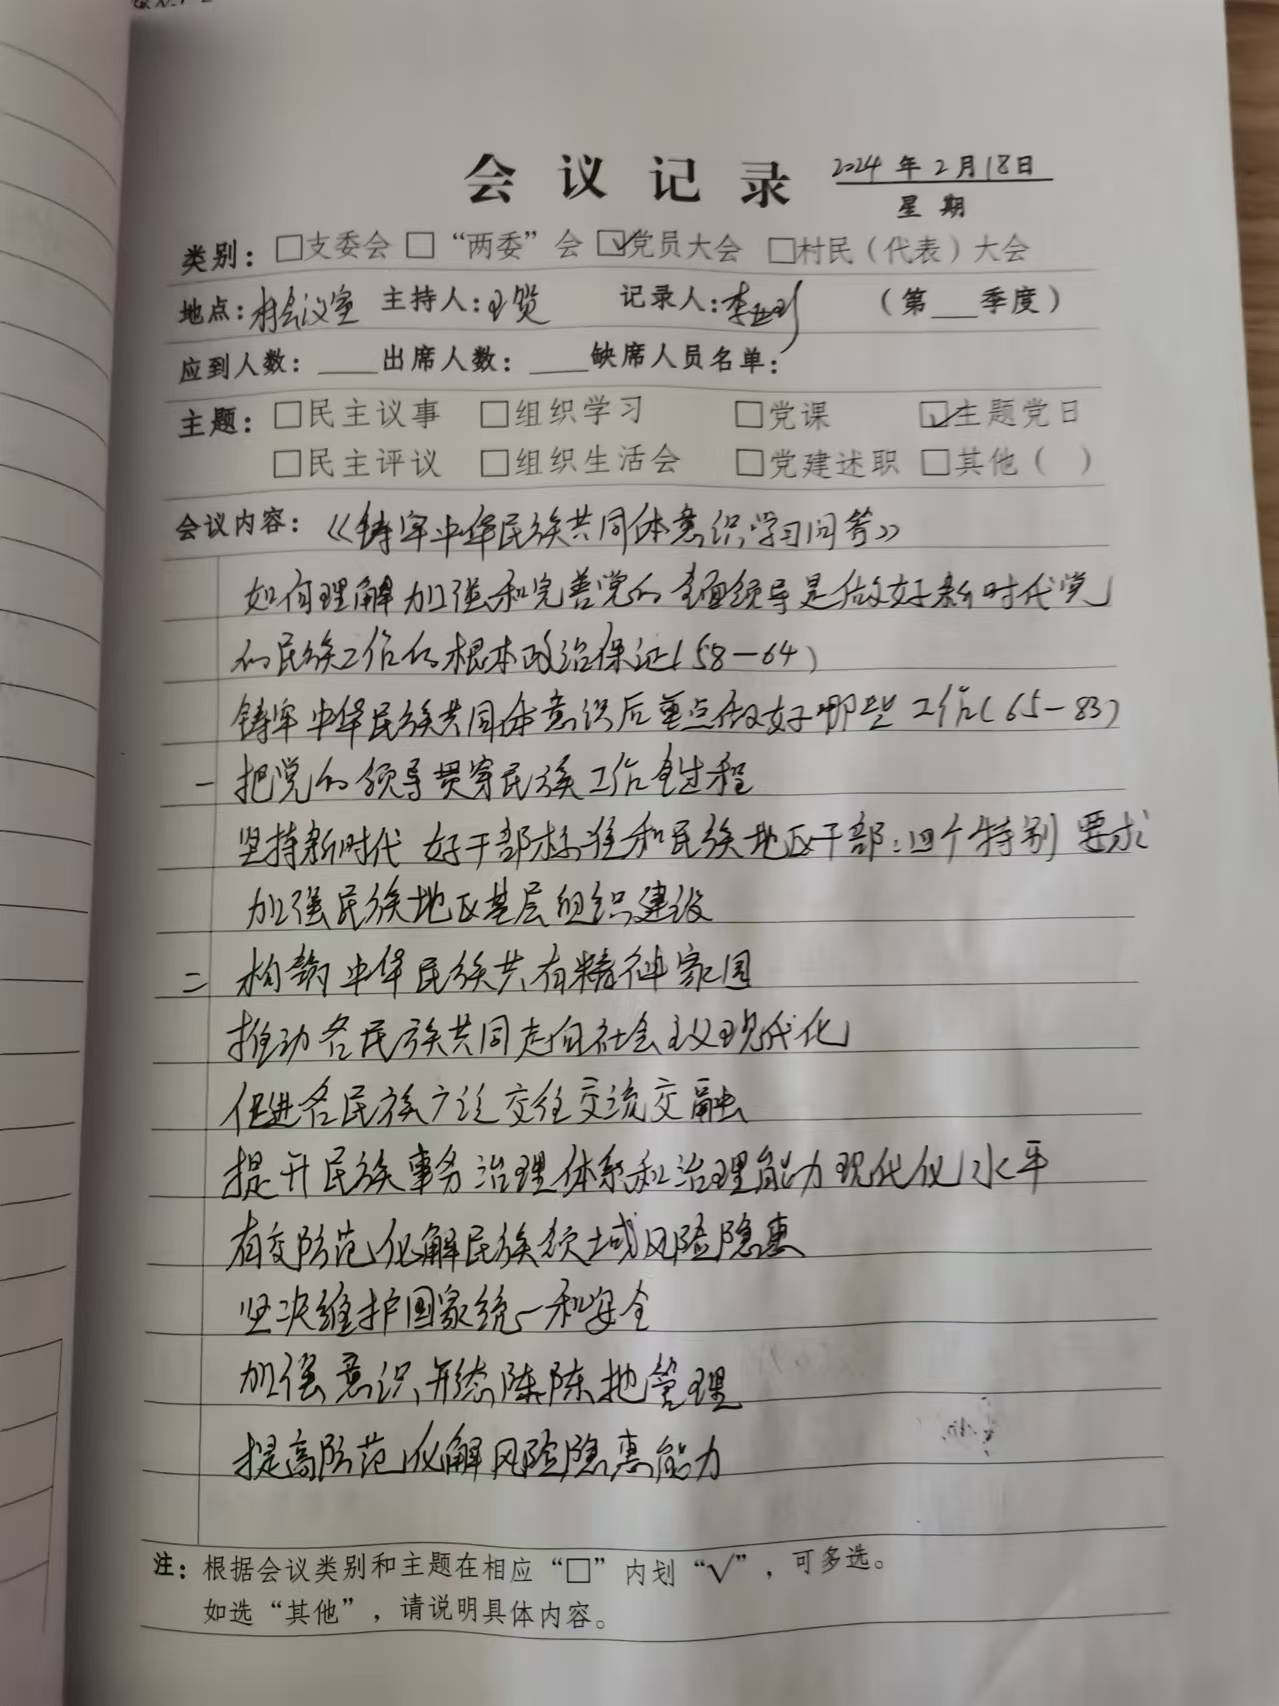 会议记录 2024年2月18日
星期
类别：□支委会 □“两委”会 ☑党员大会 □村民（代表）大会
地点：村会议室 主持人：王 记录人：李 （第___季度）
应到人数：____出席人数：____缺席人员名单：
主题：□民主议事 □组织学习 □党课 ☑主题党日
□民主评议 □组织生活会 □党建述职 □其他（ ）
会议内容：《铸牢中华民族共同体意识学习问答》
如何理解加强和完善党的全面领导是做好新时代党
的民族工作的根本政治保证（58—64）
铸牢中华民族共同体意识后重点做好哪些工作（65—83）
一 把党的领导贯穿民族工作全过程
坚持新时代 好干部标准和民族地区干部：四个特别 要求
加强民族地区基层组织建设
二 构筑中华民族共有精神家园
推动各民族共同走向社会主义现代化
促进各民族广泛交往交流交融
提升民族事务治理体系和治理能力现代化水平
有效防范化解民族领域风险隐患
坚决维护国家统一和安全
加强意识形态阵地管理
提高防范化解风险隐患能力
注：根据会议类别和主题在相应“□”内划“√”，可多选。
如选“其他”，请说明具体内容。